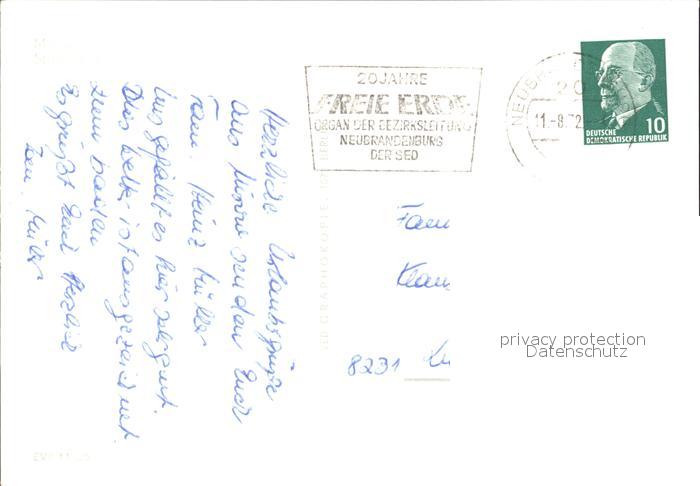 20 JAHRE
FREIE ERDE
ORGAN DER BEZIRKSLEITUNG
NEUBRANDENBURG
DER SED
11.-8.72
10
DEUTSCHE
DEMOKRATISCHE REPUBLIK
Herzliche Urlaubsgrüße
aus senden Euch
Fam. Heinz Müller
Uns gefällt es hier sehr gut.
Das Wetter ist ausgezeichnet
zum baden
Es grüßt Euch Herzlich
Fam. Müller
Fam
Klau
8231
privacy protection
Datenschutz